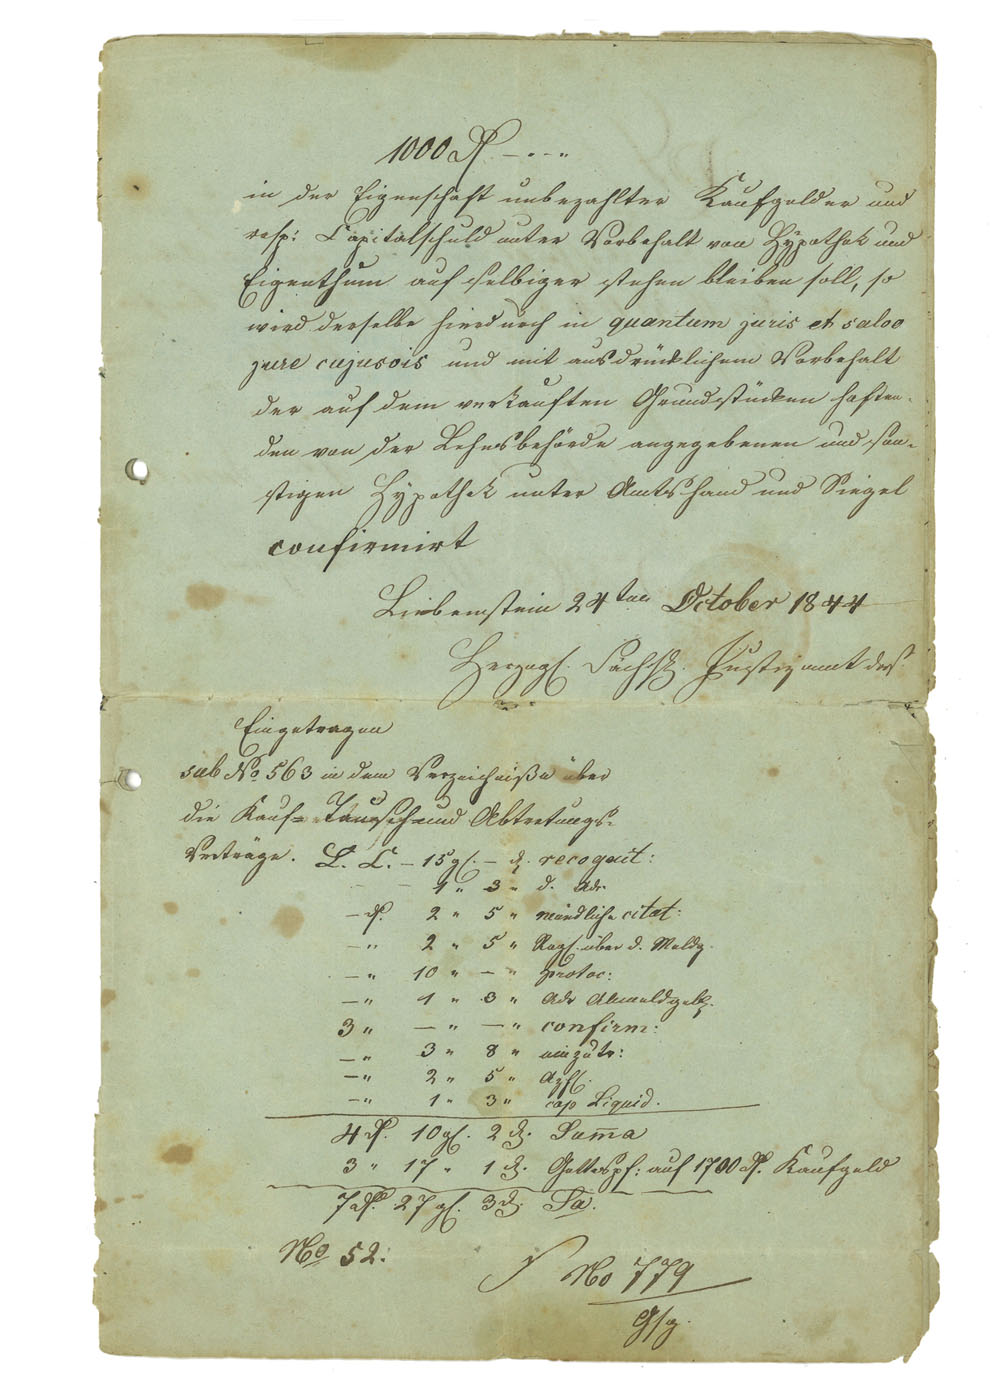 1000 fl. — „ — „
in der Eigenschaft unbezahlter Kaufgelder und
resp: Capitalschuld unter Vorbehalt von Hypothek und
Eigenthum auf selbiger stehen bleiben soll, so
wird derselbe hierdurch in quantum juris et salvo
jure cujusvis und mit ausdrücklichem Vorbehalt
der auf dem verkauften Grundstücken haften-
den von der Lehnsbehörde angegebenen und son-
stigen Hypothek unter Amtshand und Siegel
confirmirt
Liebenstein 24ten October 1844
Herzogl. Sächs. Justizamt das.
Eingetragen
sub No 563 in dem Verzeichniße über
die Kauf- Tausch- und Abtretungs-
Verträge. L. C. — 15 gl. — d. recognit:
1 „ 3 „ d. Adv.
— fl. 2 „ 5 „ mündliche citat:
— „ 2 „ 5 „ über d. Meldg.
— „ 10 „ — „ protoc:
— „ 1 „ 3 „
3 „ — „ — „ confirm:
— „ 3 „ 8 „ einzutr:
— „ 2 „ 5 „
— „ 1 „ 3 „ Liquid.
4 fl. 10 gl. 2 d. Summa
3 „ 17 „ 1 d. Gottespf: auf 1700 fl. Kaufgeld
7 fl. 27 gl. 3 d. Sa.
No 52.
No 779